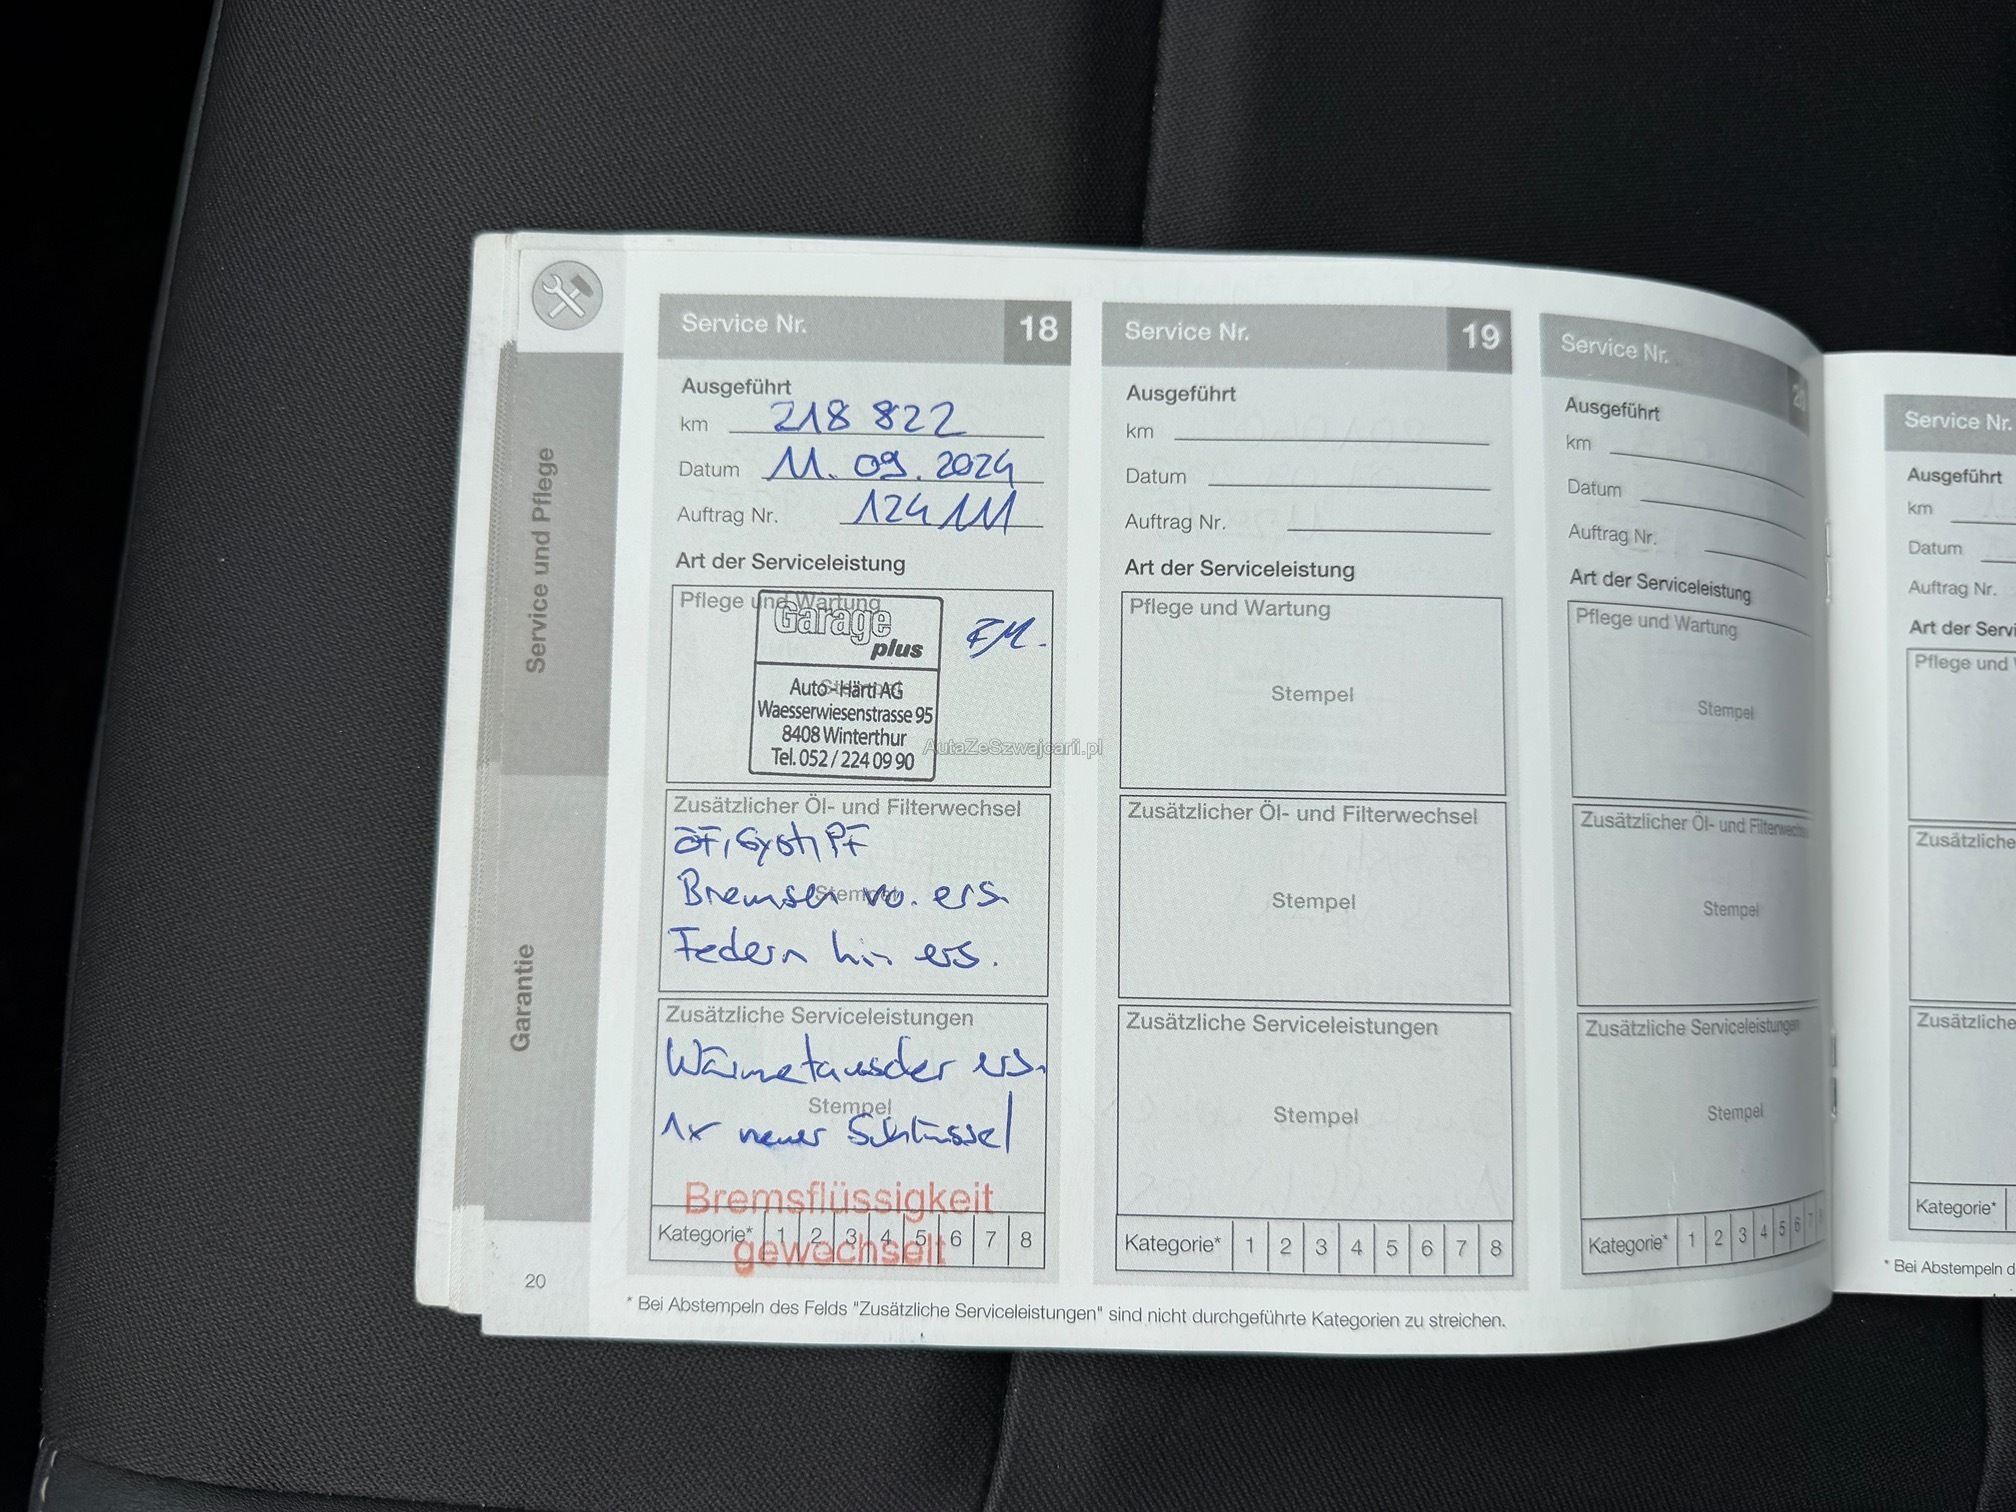 Service und Pflege
Garantie
Service Nr. 18
Ausgeführt
km 218 822
Datum 11. 09. 2024
Auftrag Nr. 124111
Art der Serviceleistung
Pflege und Wartung
Garage
plus
Auto-Härti AG
Waesserwiesenstrasse 95
8408 Winterthur
Tel. 052 / 224 09 90
Zusätzlicher Öl- und Filterwechsel
Stempel
Bremsen vo. ers.
Federn hin ers.
Zusätzliche Serviceleistungen
Wärmetauscher ers.
Stempel
1x neuer Schlüssel
Bremsflüssigkeit
gewechselt
Kategorie* 1 2 3 4 5 6 7 8
20
Service Nr. 19
Ausgeführt
km
Datum
Auftrag Nr.
Art der Serviceleistung
Pflege und Wartung
Stempel
Zusätzlicher Öl- und Filterwechsel
Stempel
Zusätzliche Serviceleistungen
Stempel
Kategorie* 1 2 3 4 5 6 7 8
Service Nr. 20
Ausgeführt
km
Datum
Auftrag Nr.
Art der Serviceleistung
Pflege und Wartung
Stempel
Zusätzlicher Öl- und Filterwechsel
Stempel
Zusätzliche Serviceleistungen
Stempel
Kategorie* 1 2 3 4 5 6 7 8
* Bei Abstempeln des Felds "Zusätzliche Serviceleistungen" sind nicht durchgeführte Kategorien zu streichen.
Service Nr.
Ausgeführt
km
Datum
Auftrag Nr.
Art der Servi
Pflege und
Zusätzliche
Zusätzliche
Kategorie*
* Bei Abstempeln d
AutaZeSzwajcarii.pl